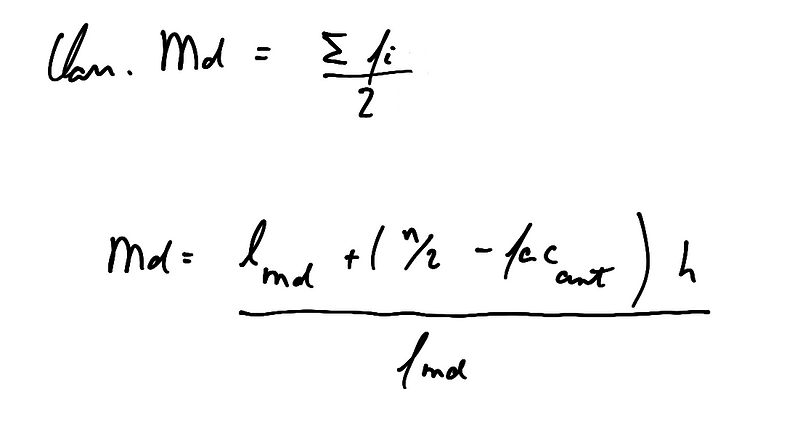 Clan. Md = Σ fi / 2
Md = l md + ( n/2 - fac ant ) h / f md